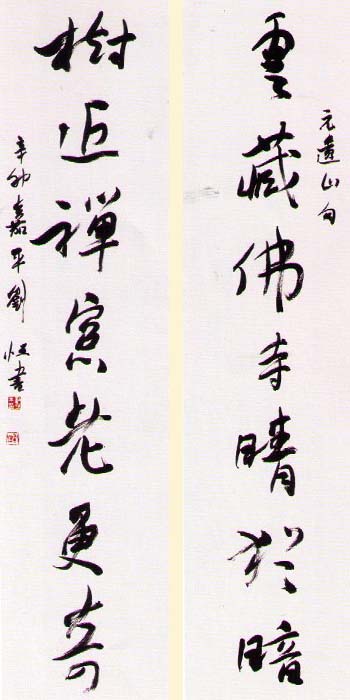 雲藏佛寺晴猶暗
元遺山句
樹近禪窗老更奇
辛卯嘉平劉恆書